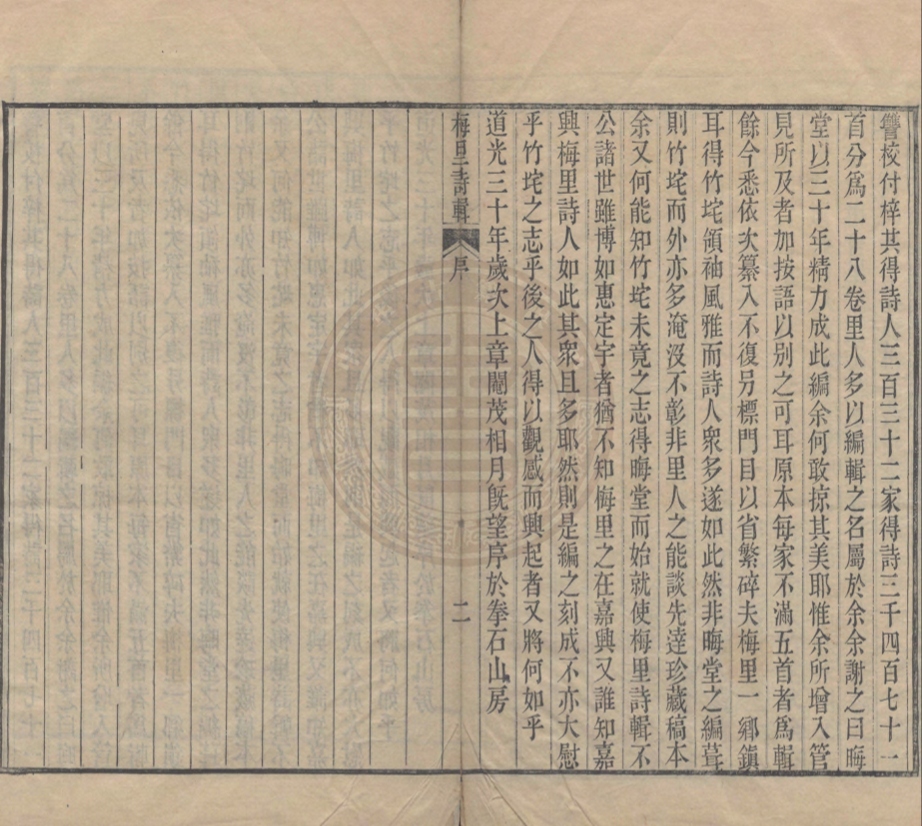 讐校付梓其得詩人三百三十二家得詩三千四百七十一
首分爲二十八卷里人多以編輯之名屬於余余謝之曰晦
堂以三十年精力成此編余何敢掠其美耶惟余所增入管
見所及者加按語以别之可耳原本每家不滿五首者爲輯
餘今悉依次纂入不復另標門目以省繁碎夫梅里一鄉鎮
耳得竹垞領袖風雅而詩人衆多遂如此然非晦堂之編葺
則竹垞而外亦多淹沒不彰非里人之能談先達珍藏稿本
余又何能知竹垞未竟之志得晦堂而始就使梅里詩輯不
公諸世雖博如惠定宇者猶不知梅里之在嘉興又誰知嘉
興梅里詩人如此其衆且多耶然則是編之刻成不亦大慰
乎竹垞之志乎後之人得以觀感而興起者又將何如乎
道光三十年歲次上章閹茂相月旣望序於拳石山房
梅里詩輯 序 二